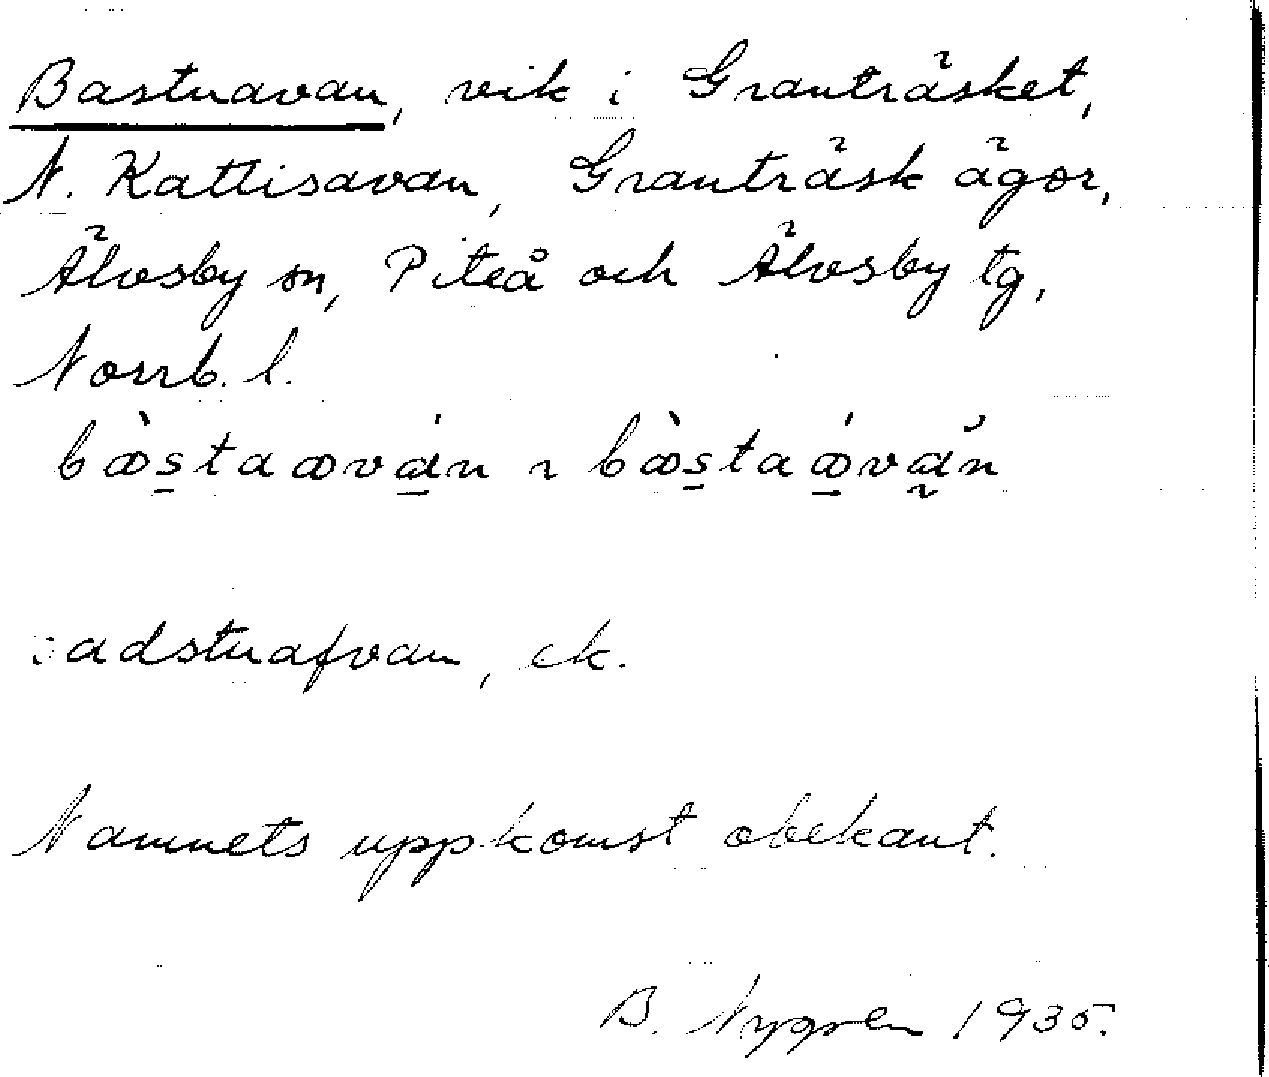 Bastuavan, vik i Granträsket,
N. Kattisavan, Granträsk ägor,
Älvsby sn, Piteå och Älvsby tg,
Norrb. l.
adstuafvan, ek.
Namnets uppkomst obekant.
B. Nygren 1935.